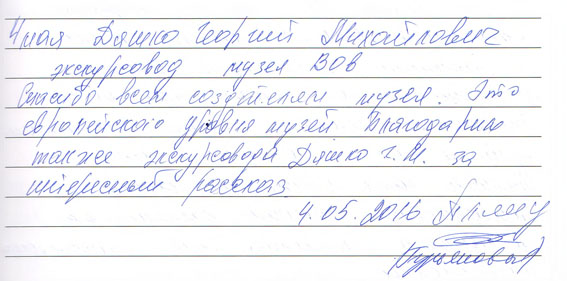 4 мая Дяшко Георгий Михайлович
экскурсовод музея ВОВ
Спасибо всем создателям музея. Это
европейского уровня музей Благодарим
также экскурсовода Дяшко Г. М. за
интересный рассказ
4.05.2016